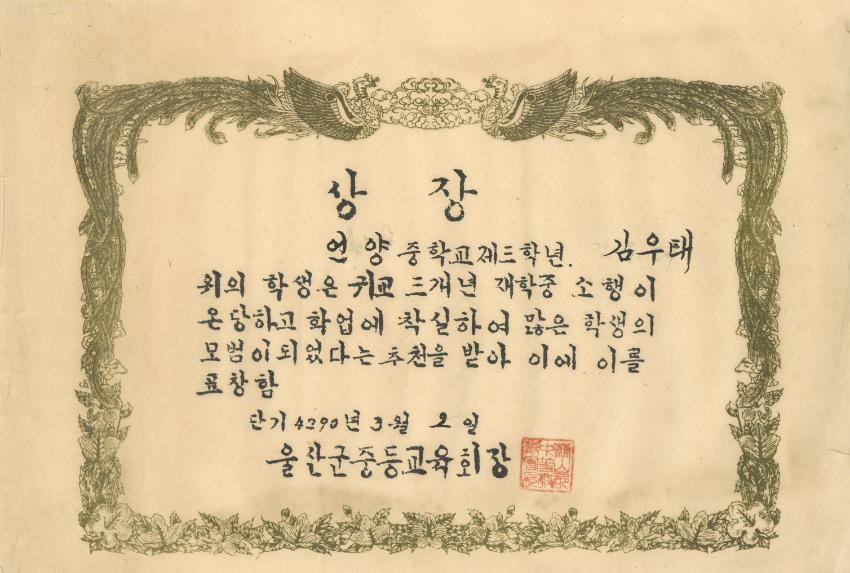 상 장
언양 중학교 제三학년. 김우태
위의 학생은 귀교 三개년 재학중 소행이
온당하고 학업에 착실하여 많은 학생의
모범이 되었다는 추천을 받아 이에 이를
표창함
단기 4290년 3월 2일
울산군중등교육회장